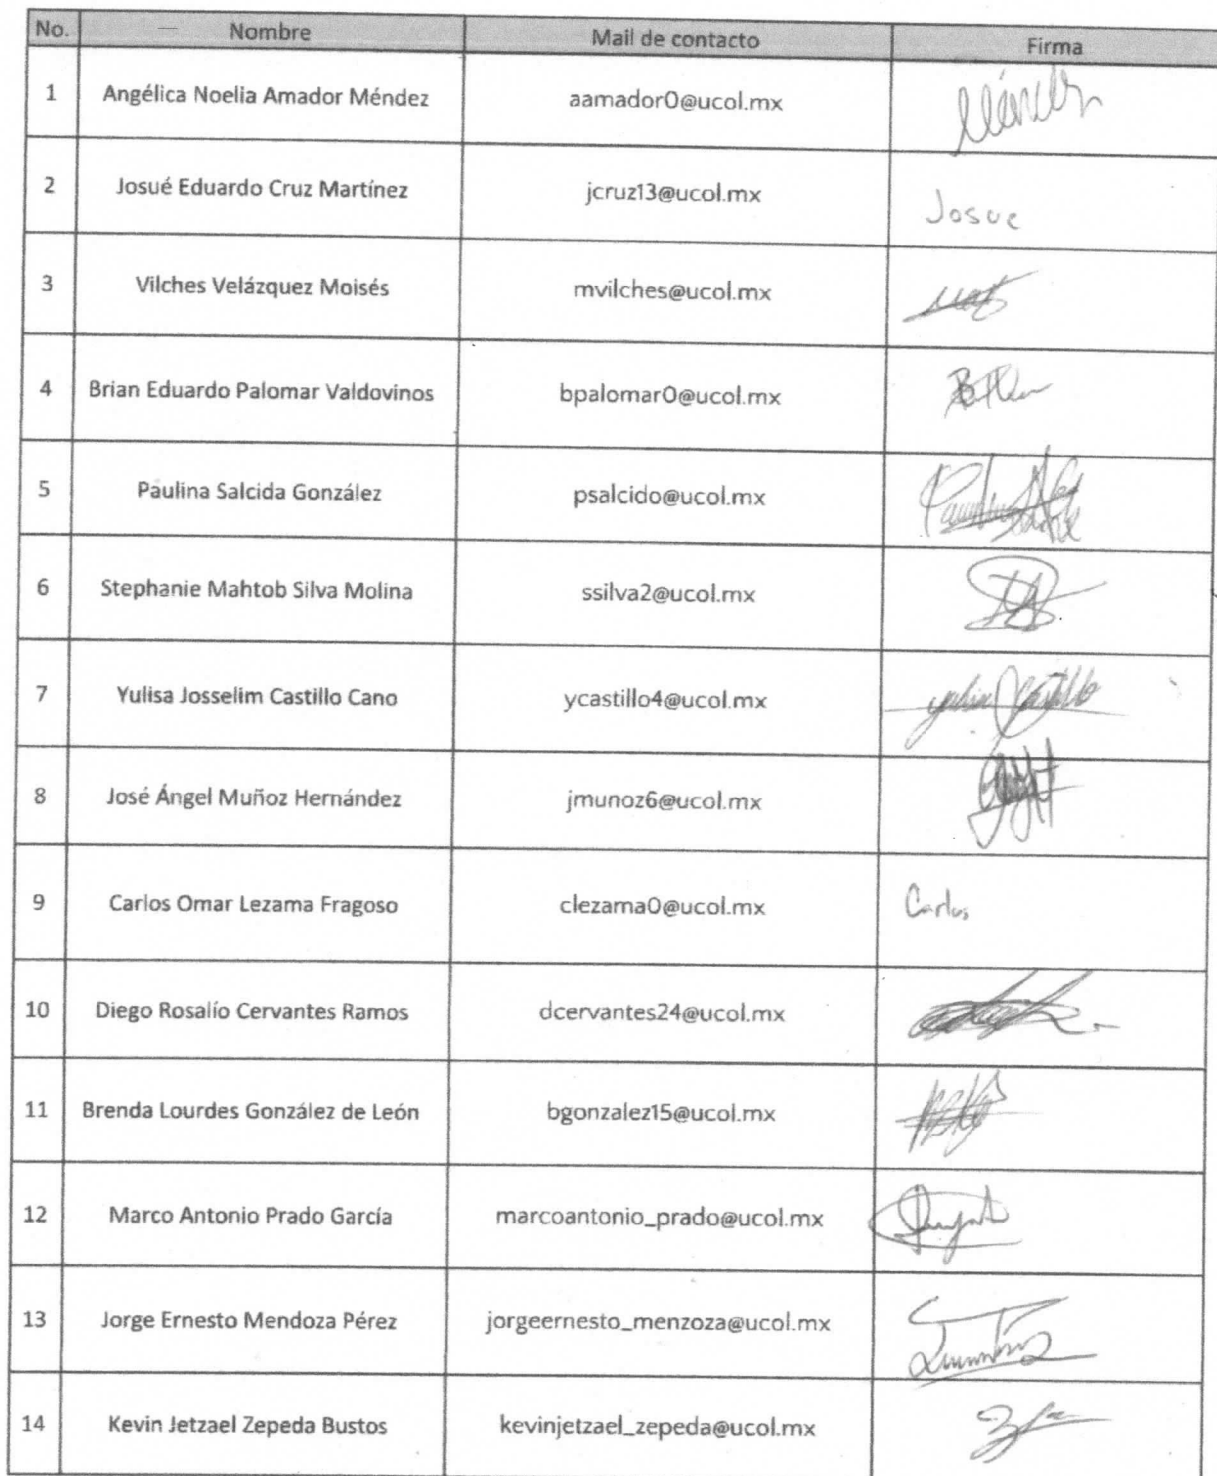 No. Nombre Mail de contacto Firma
1 Angélica Noelia Amador Méndez aamador0@ucol.mx
2 Josué Eduardo Cruz Martínez jcruz13@ucol.mx Josue
3 Vilches Velázquez Moisés mvilches@ucol.mx
4 Brian Eduardo Palomar Valdovinos bpalomar0@ucol.mx
5 Paulina Salcida González psalcido@ucol.mx
6 Stephanie Mahtob Silva Molina ssilva2@ucol.mx
7 Yulisa Josselim Castillo Cano ycastillo4@ucol.mx Yulisa Castillo
8 José Ángel Muñoz Hernández jmunoz6@ucol.mx
9 Carlos Omar Lezama Fragoso clezama0@ucol.mx Carlos
10 Diego Rosalío Cervantes Ramos dcervantes24@ucol.mx
11 Brenda Lourdes González de León bgonzalez15@ucol.mx
12 Marco Antonio Prado García marcoantonio_prado@ucol.mx
13 Jorge Ernesto Mendoza Pérez jorgeernesto_menzoza@ucol.mx
14 Kevin Jetzael Zepeda Bustos kevinjetzael_zepeda@ucol.mx